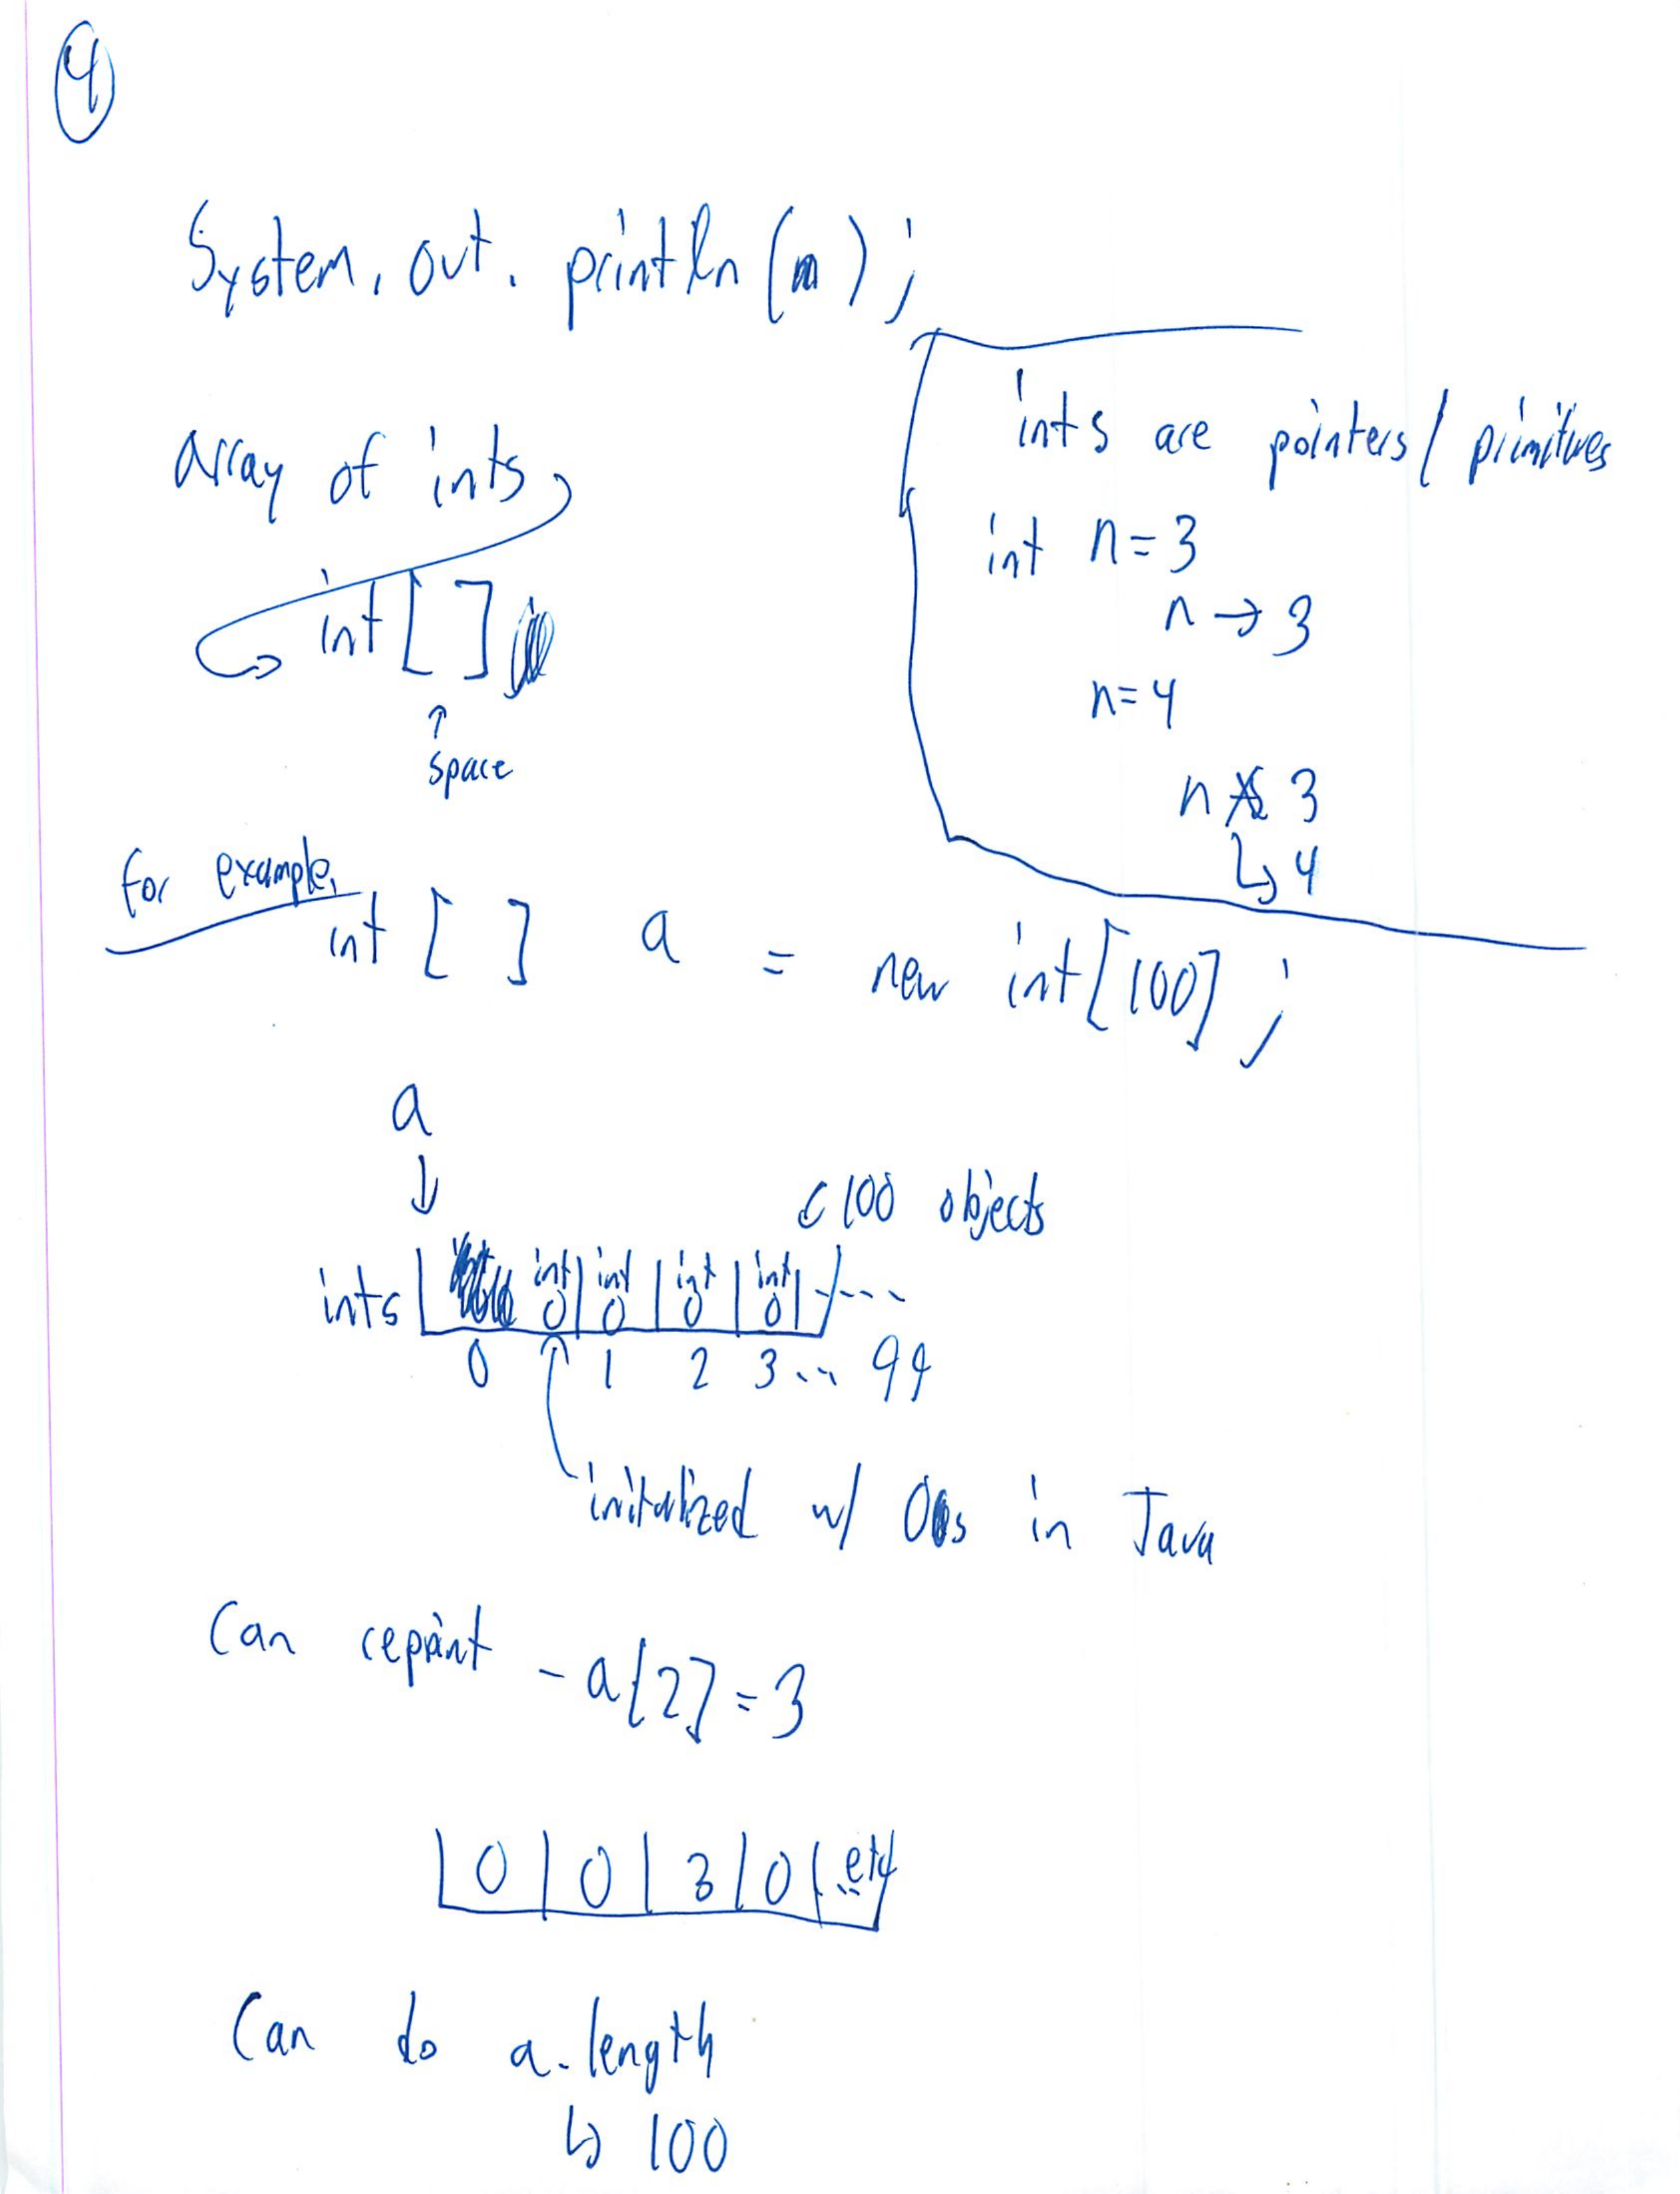 4
System.out.println(m);
array of ints,
int[ ]
↑
space
ints are pointers/primitives
int n=3
n → 3
n=4
n 3
↳ 4
for example,
int [ ] a = new int[100];
a
↓
100 objects
ints int int int int ...
0 0 0 0
0 1 2 3 ... 99
initalized w/ 0s in Java
Can repoint - a[2]=3
0 | 0 | 3 | 0 | etc
Can do a.length
↳ 100